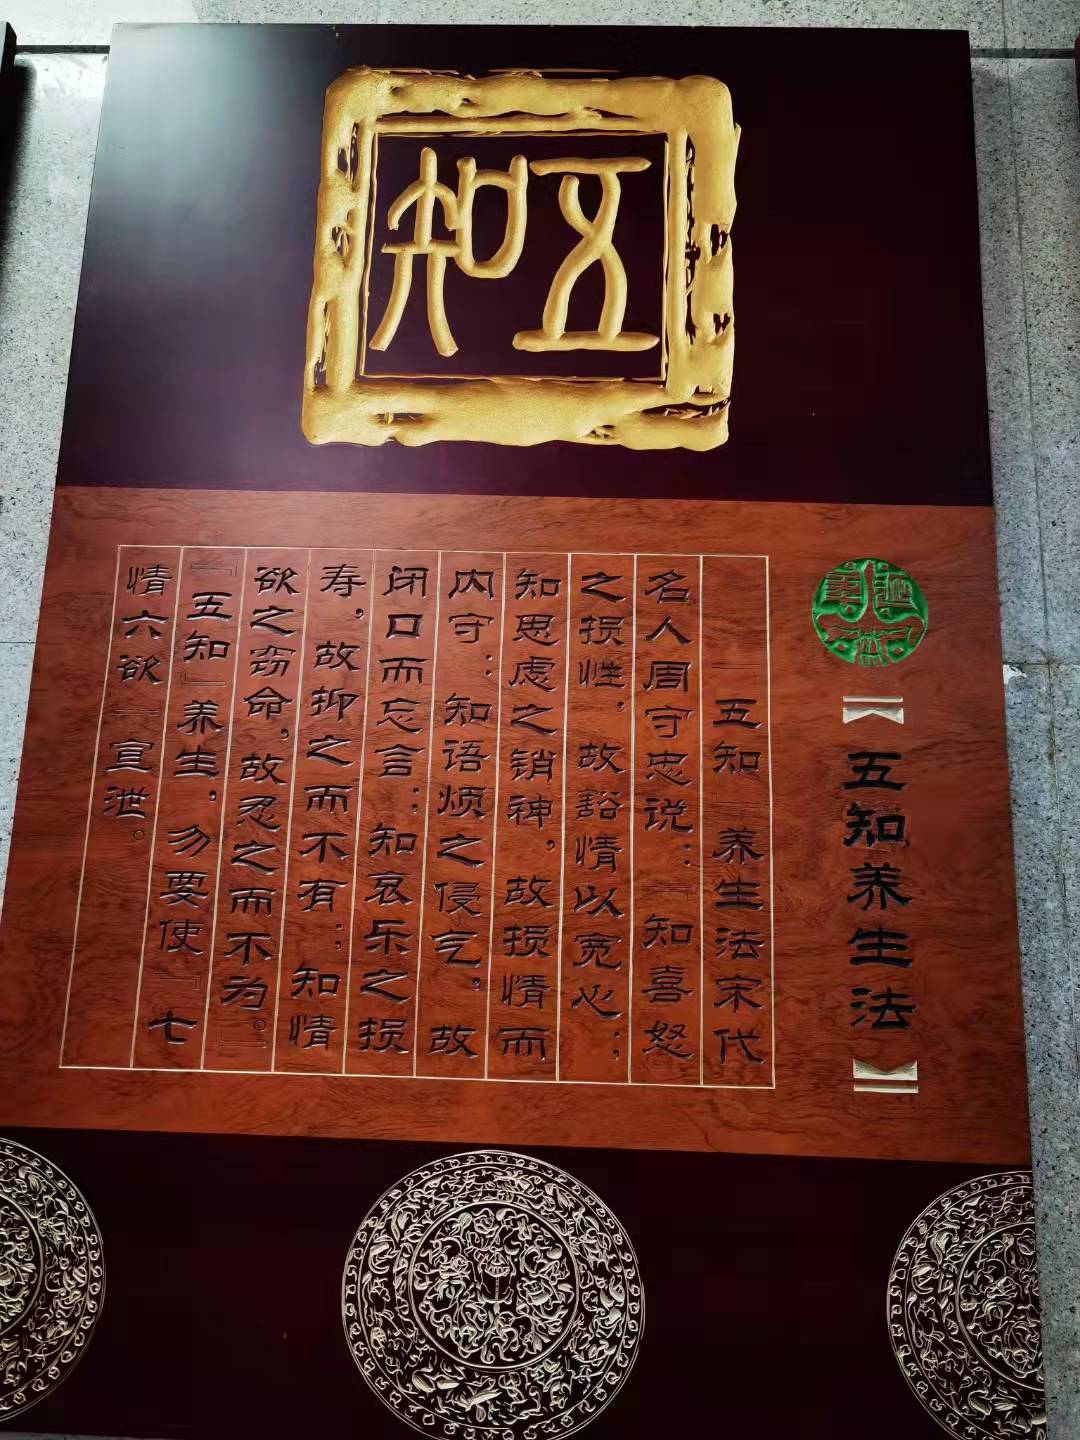 五知
五知养生法
『五知』养生法宋代
名人周守忠说：『知喜怒
之损性，故豁情以宽心；
知思虑之销神，故损情而
内守；知语烦之侵气，故
闭口而忘言；知哀乐之损
寿，故抑之而不有；知情
欲之窃命，故忍之而不为。』
『五知』养生，勿要使『七
情六欲』宣泄。